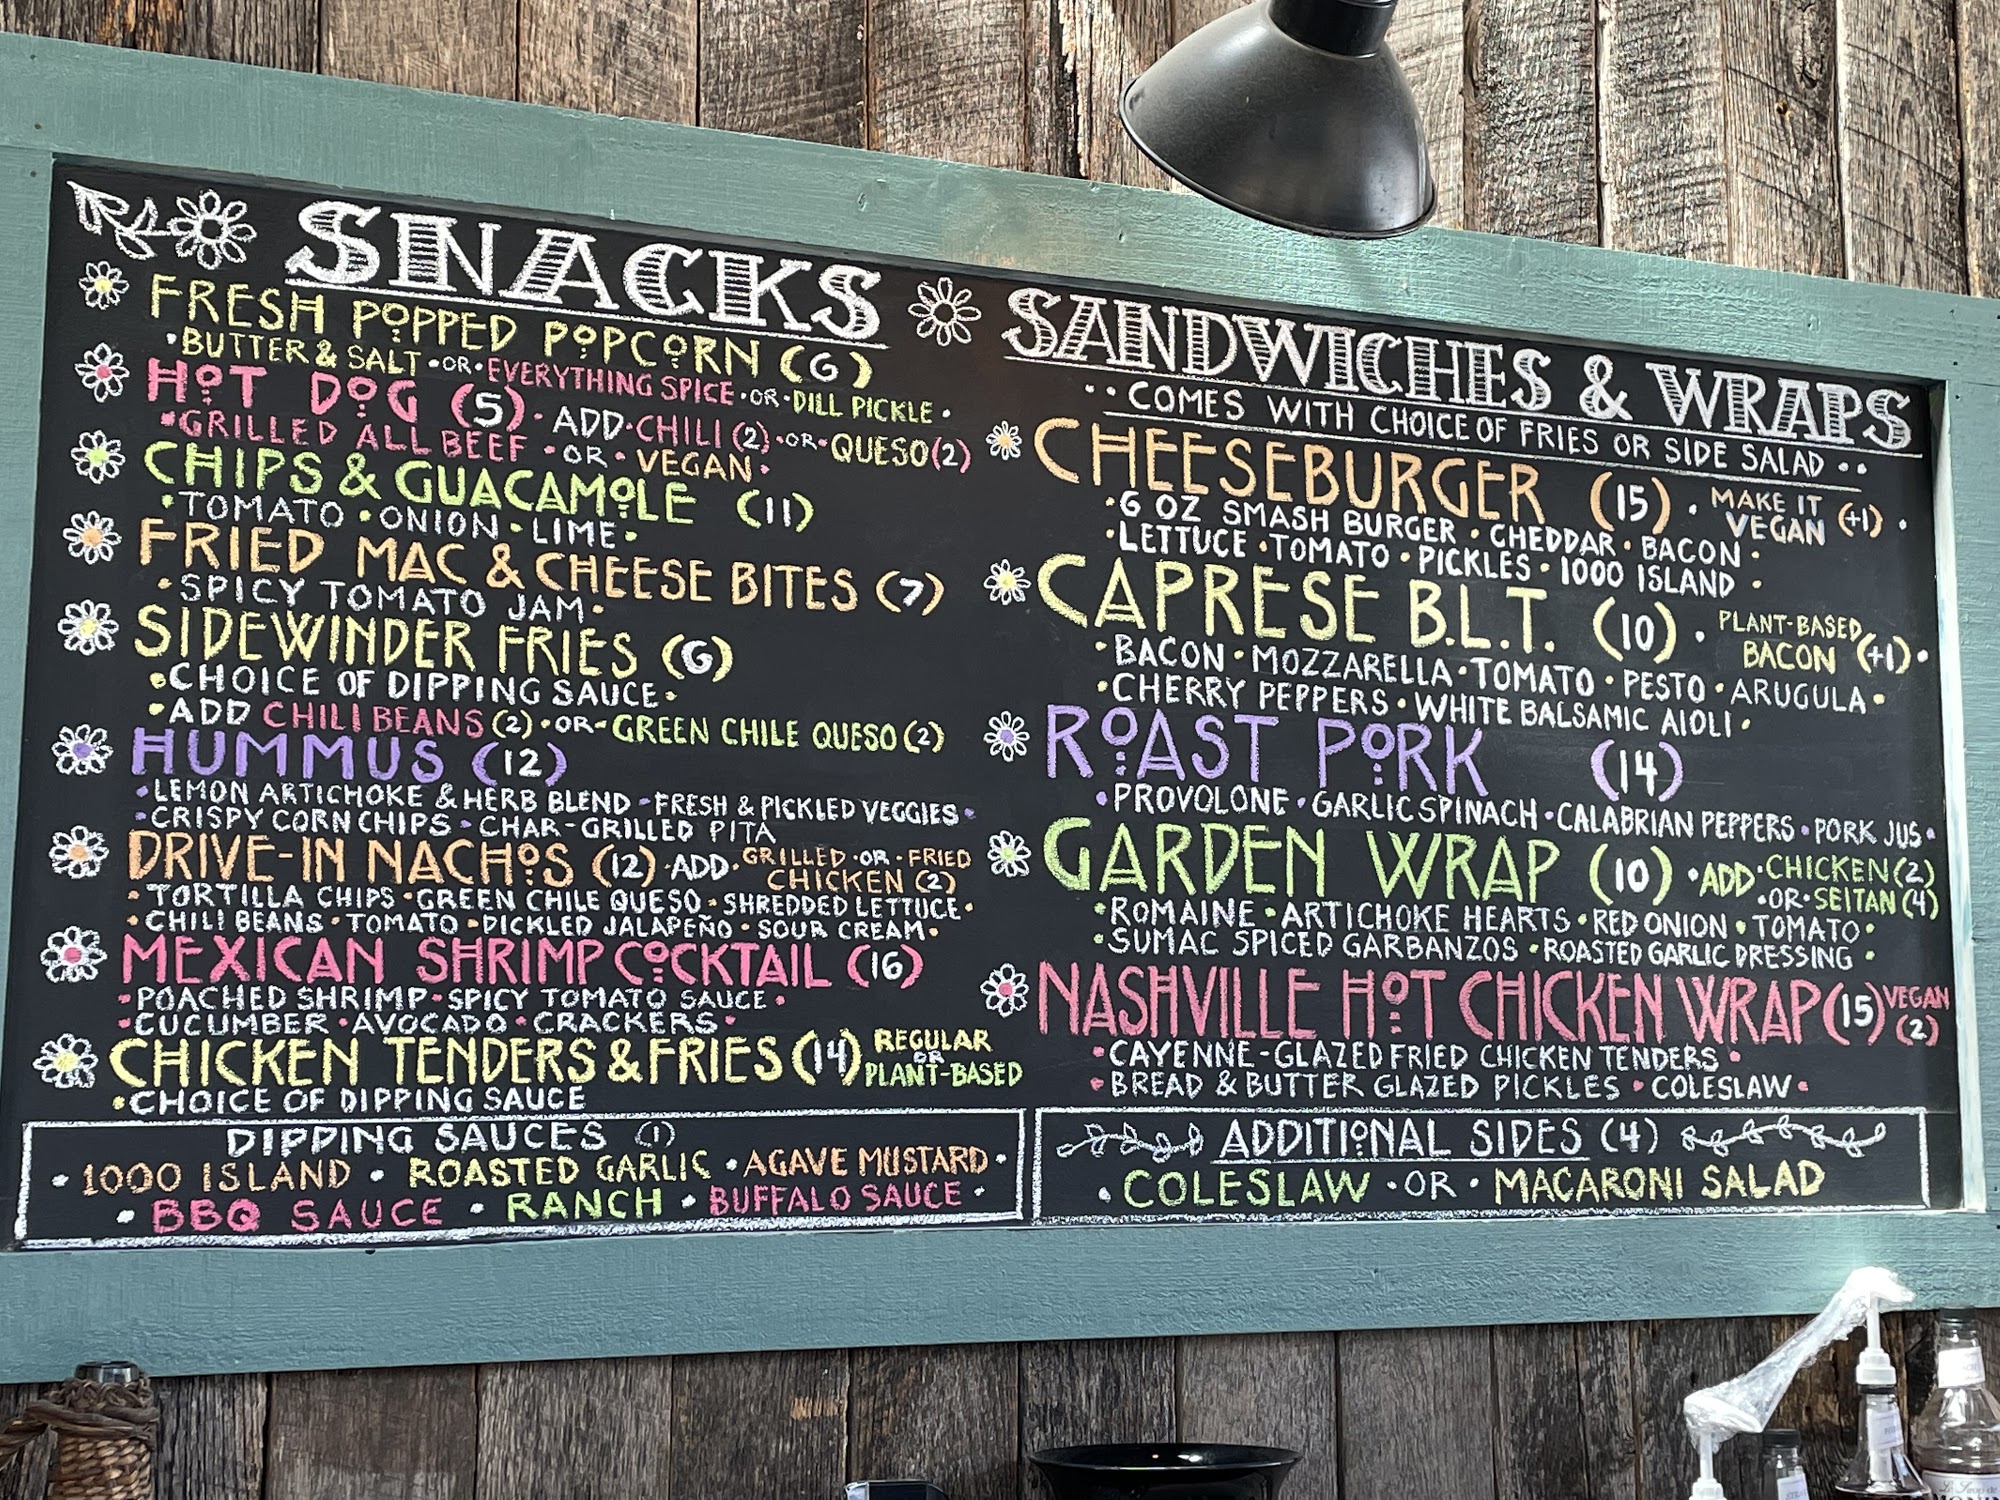 SNACKS
FRESH POPPED POPCORN (6)
• BUTTER & SALT • OR • EVERYTHING SPICE • OR • DILL PICKLE •
HOT DOG (5) • ADD • CHILI (2) • OR • QUESO (2)
• GRILLED ALL BEEF • OR • VEGAN •
CHIPS & GUACAMOLE (11)
• TOMATO • ONION • LIME •
FRIED MAC & CHEESE BITES (7)
• SPICY TOMATO JAM •
SIDEWINDER FRIES (6)
• CHOICE OF DIPPING SAUCE •
• ADD CHILI BEANS (2) • OR • GREEN CHILE QUESO (2)
HUMMUS (12)
• LEMON ARTICHOKE & HERB BLEND • FRESH & PICKLED VEGGIES •
• CRISPY CORN CHIPS • CHAR-GRILLED PITA
DRIVE-IN NACHOS (12) • ADD • GRILLED • OR • FRIED
CHICKEN (2)
• TORTILLA CHIPS • GREEN CHILE QUESO • SHREDDED LETTUCE •
• CHILI BEANS • TOMATO • PICKLED JALAPEÑO • SOUR CREAM •
MEXICAN SHRIMP COCKTAIL (16)
• POACHED SHRIMP • SPICY TOMATO SAUCE •
• CUCUMBER • AVOCADO • CRACKERS •
CHICKEN TENDERS & FRIES (14) REGULAR
OR
PLANT-BASED
• CHOICE OF DIPPING SAUCE
DIPPING SAUCES (1)
• 1000 ISLAND • ROASTED GARLIC • AGAVE MUSTARD •
• BBQ SAUCE • RANCH • BUFFALO SAUCE •
SANDWICHES & WRAPS
•• COMES WITH CHOICE OF FRIES OR SIDE SALAD ••
CHEESEBURGER (15) • MAKE IT
VEGAN (+1) •
• 6 OZ SMASH BURGER • CHEDDAR • BACON •
• LETTUCE • TOMATO • PICKLES • 1000 ISLAND •
CAPRESE B.L.T. (10) • PLANT-BASED
BACON (+1) •
• BACON • MOZZARELLA • TOMATO • PESTO • ARUGULA •
• CHERRY PEPPERS • WHITE BALSAMIC AIOLI •
ROAST PORK (14)
• PROVOLONE • GARLIC SPINACH • CALABRIAN PEPPERS • PORK JUS •
GARDEN WRAP (10) • ADD • CHICKEN (2)
• OR • SEITAN (4)
• ROMAINE • ARTICHOKE HEARTS • RED ONION • TOMATO •
• SUMAC SPICED GARBANZOS • ROASTED GARLIC DRESSING •
NASHVILLE HOT CHICKEN WRAP (15) VEGAN
(2)
• CAYENNE-GLAZED FRIED CHICKEN TENDERS •
• BREAD & BUTTER GLAZED PICKLES • COLESLAW •
ADDITIONAL SIDES (4)
• COLESLAW • OR • MACARONI SALAD